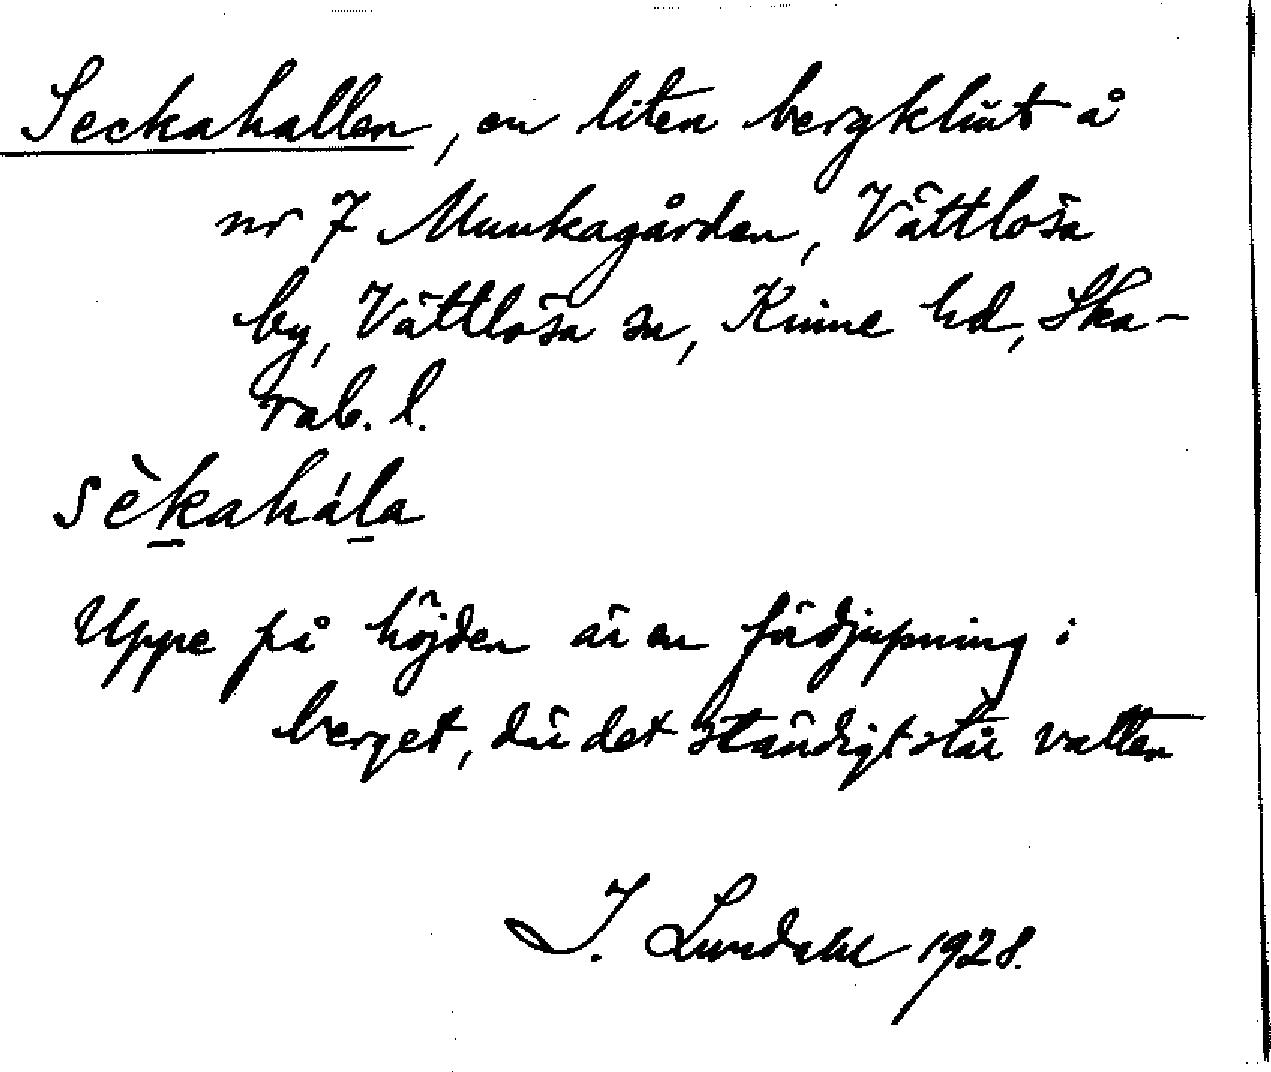 Seckahallen, en liten bergklint å
nr 7 Munkagården, Vättlösa
by, Vättlösa sn, Kinne hd, Ska-
rab. l.
sèkahála
Uppe på höjden är en fördjupning i
berget, där det ständigt står vatten
I. Lundahl 1928.